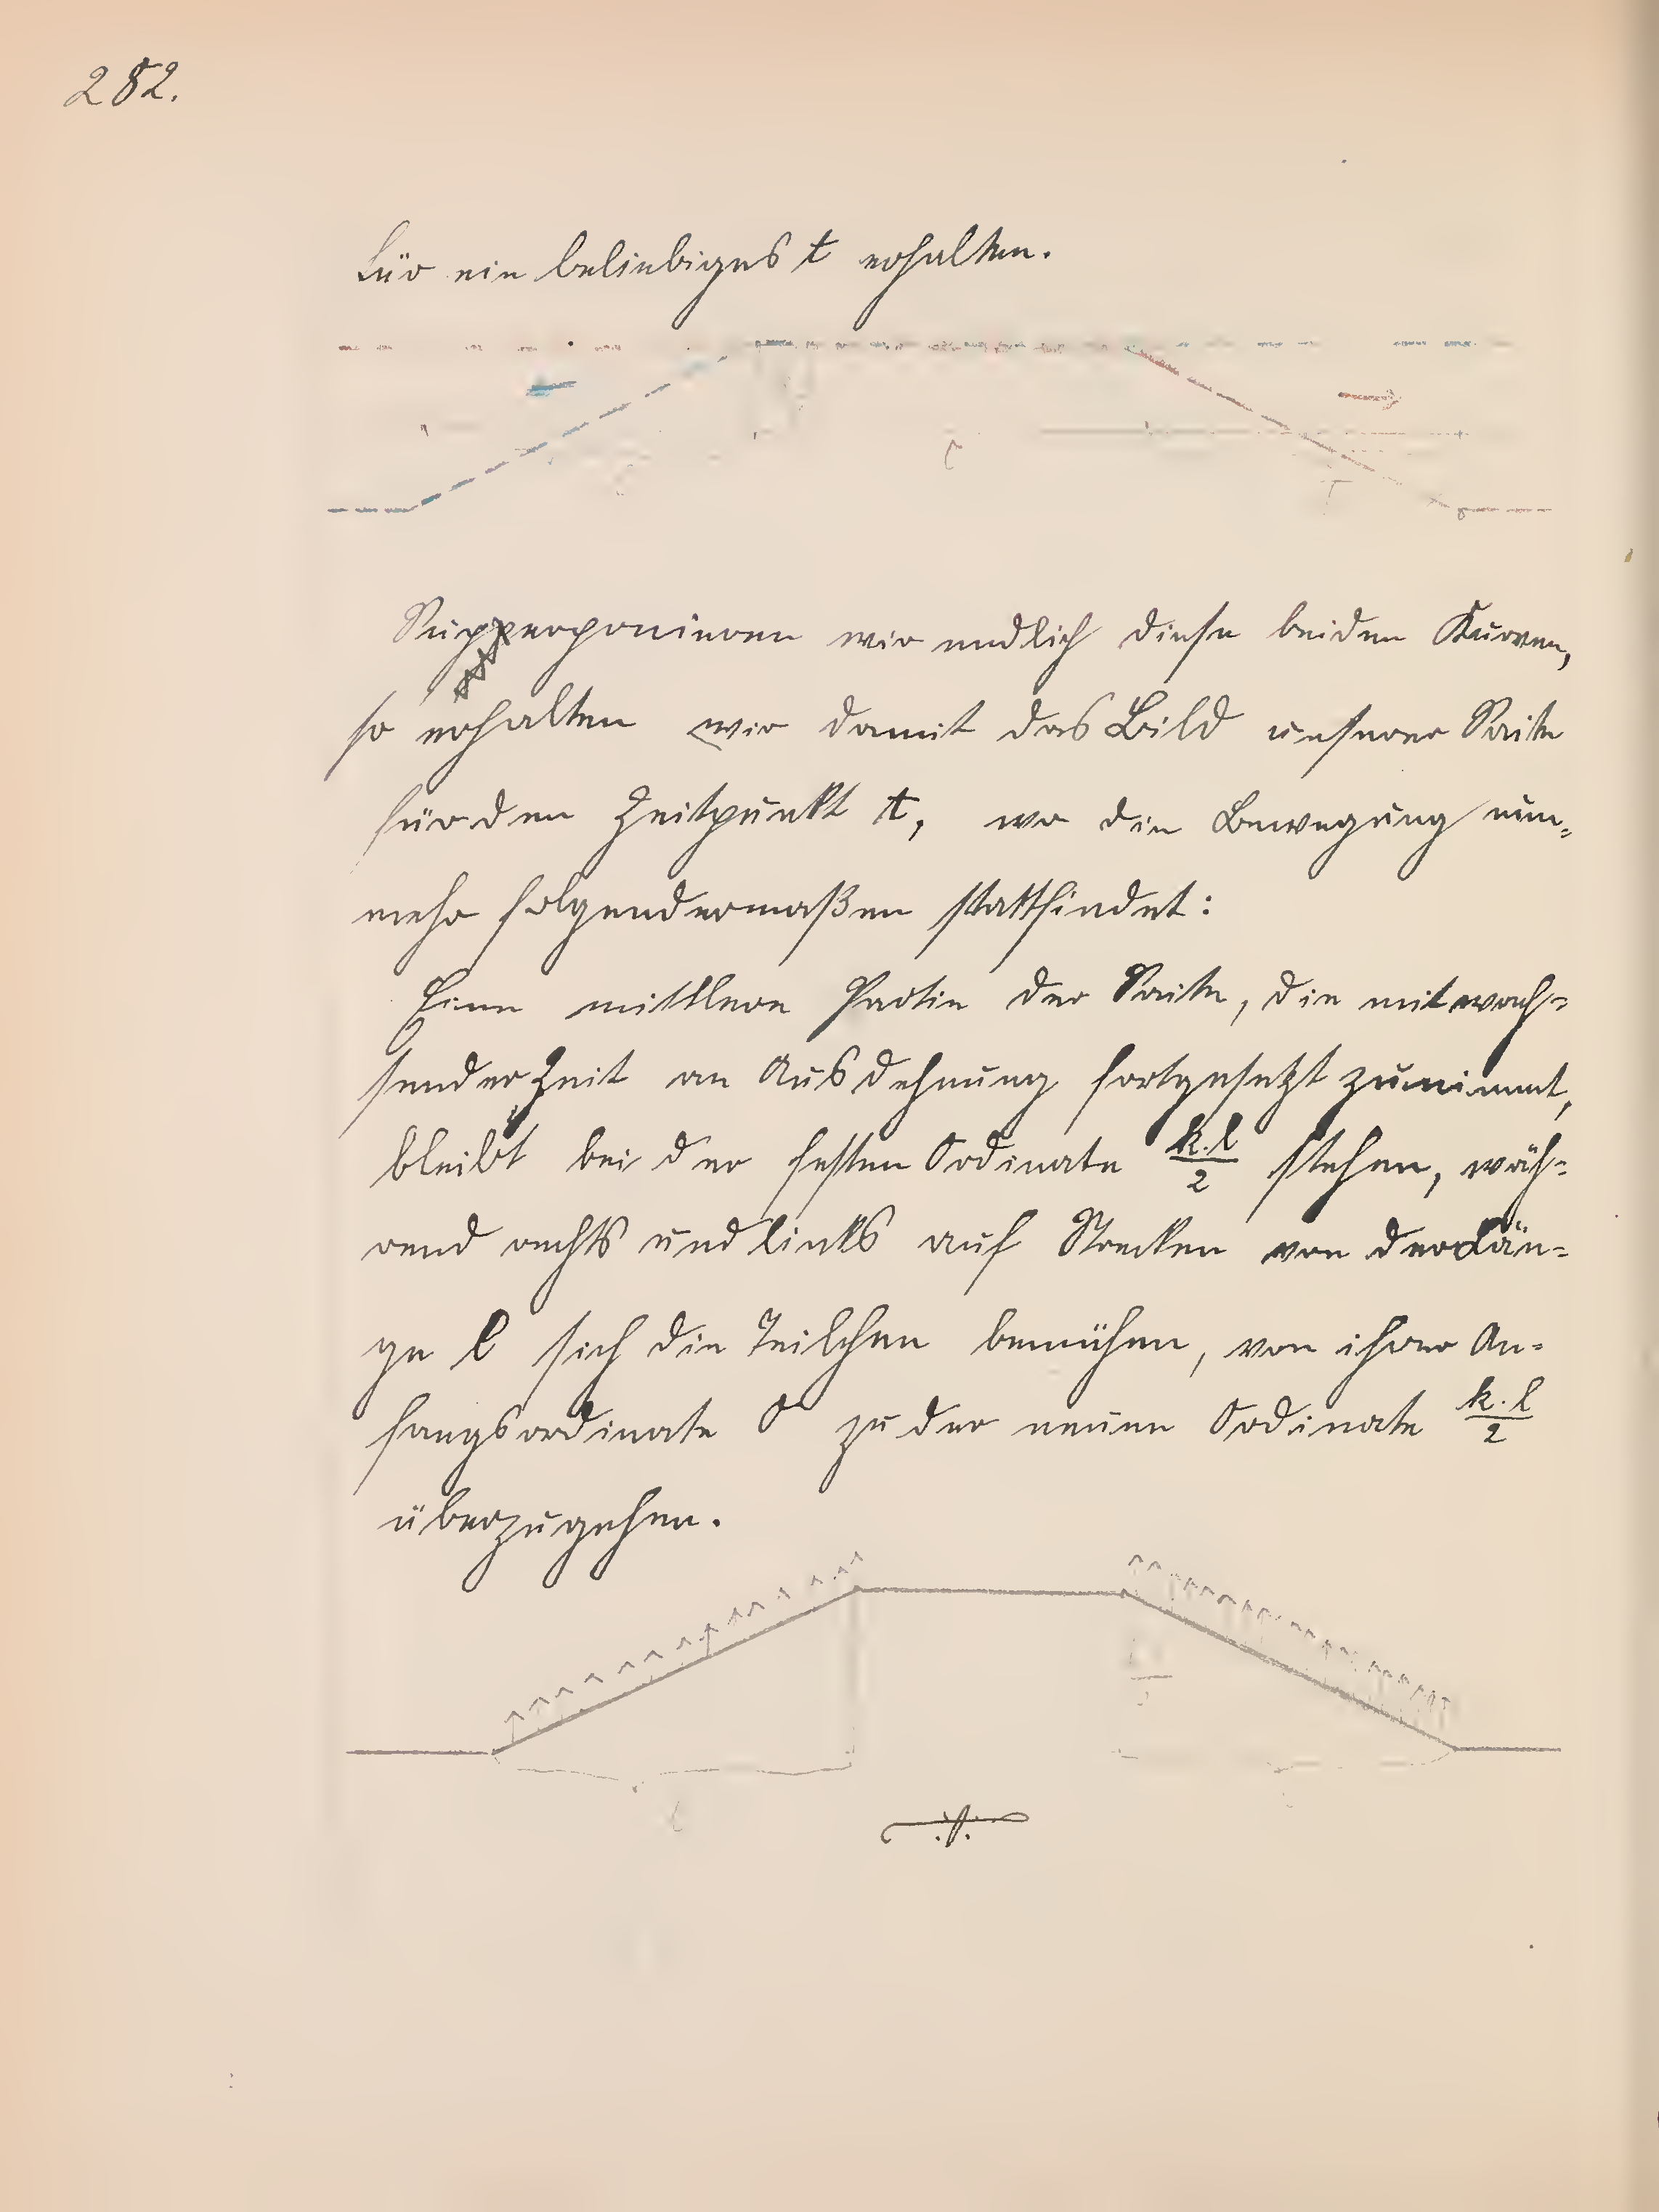 282.
für ein beliebiges t erhalten.
Superponieren wir endlich diese beiden Kurven,
so erhalten wir damit das Bild unserer Saite
für den Zeitpunkt t, wo die Bewegung nun-
mehr folgendermaßen stattfindet:
Eine mittlere Partie der Saite, die mit wach-
sender Zeit an Ausdehnung fortgesetzt zunimmt,
bleibt bei der festen Ordinate k.l/2 stehen, wäh-
rend rechts und links auf Strecken von der Län-
ge l sich die Teilchen bemühen, von ihrer An-
fangsordinate 0 zu der neuen Ordinate k.l/2
überzugehen.
l